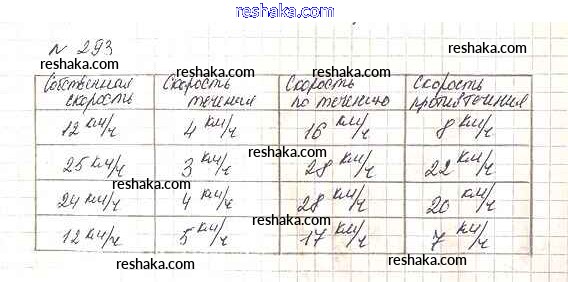 reshaka.com
N 293
reshaka.com
reshaka.com reshaka.com
Собственная скорость Скорость течения Скорость по течению Скорость против течения
12 км/ч 4 км/ч 16 км/ч 8 км/ч
reshaka.com reshaka.com
25 км/ч 3 км/ч 28 км/ч 22 км/ч
reshaka.com reshaka.com
24 км/ч 4 км/ч 28 км/ч 20 км/ч
reshaka.com
12 км/ч 5 км/ч 17 км/ч 7 км/ч
reshaka.com reshaka.com